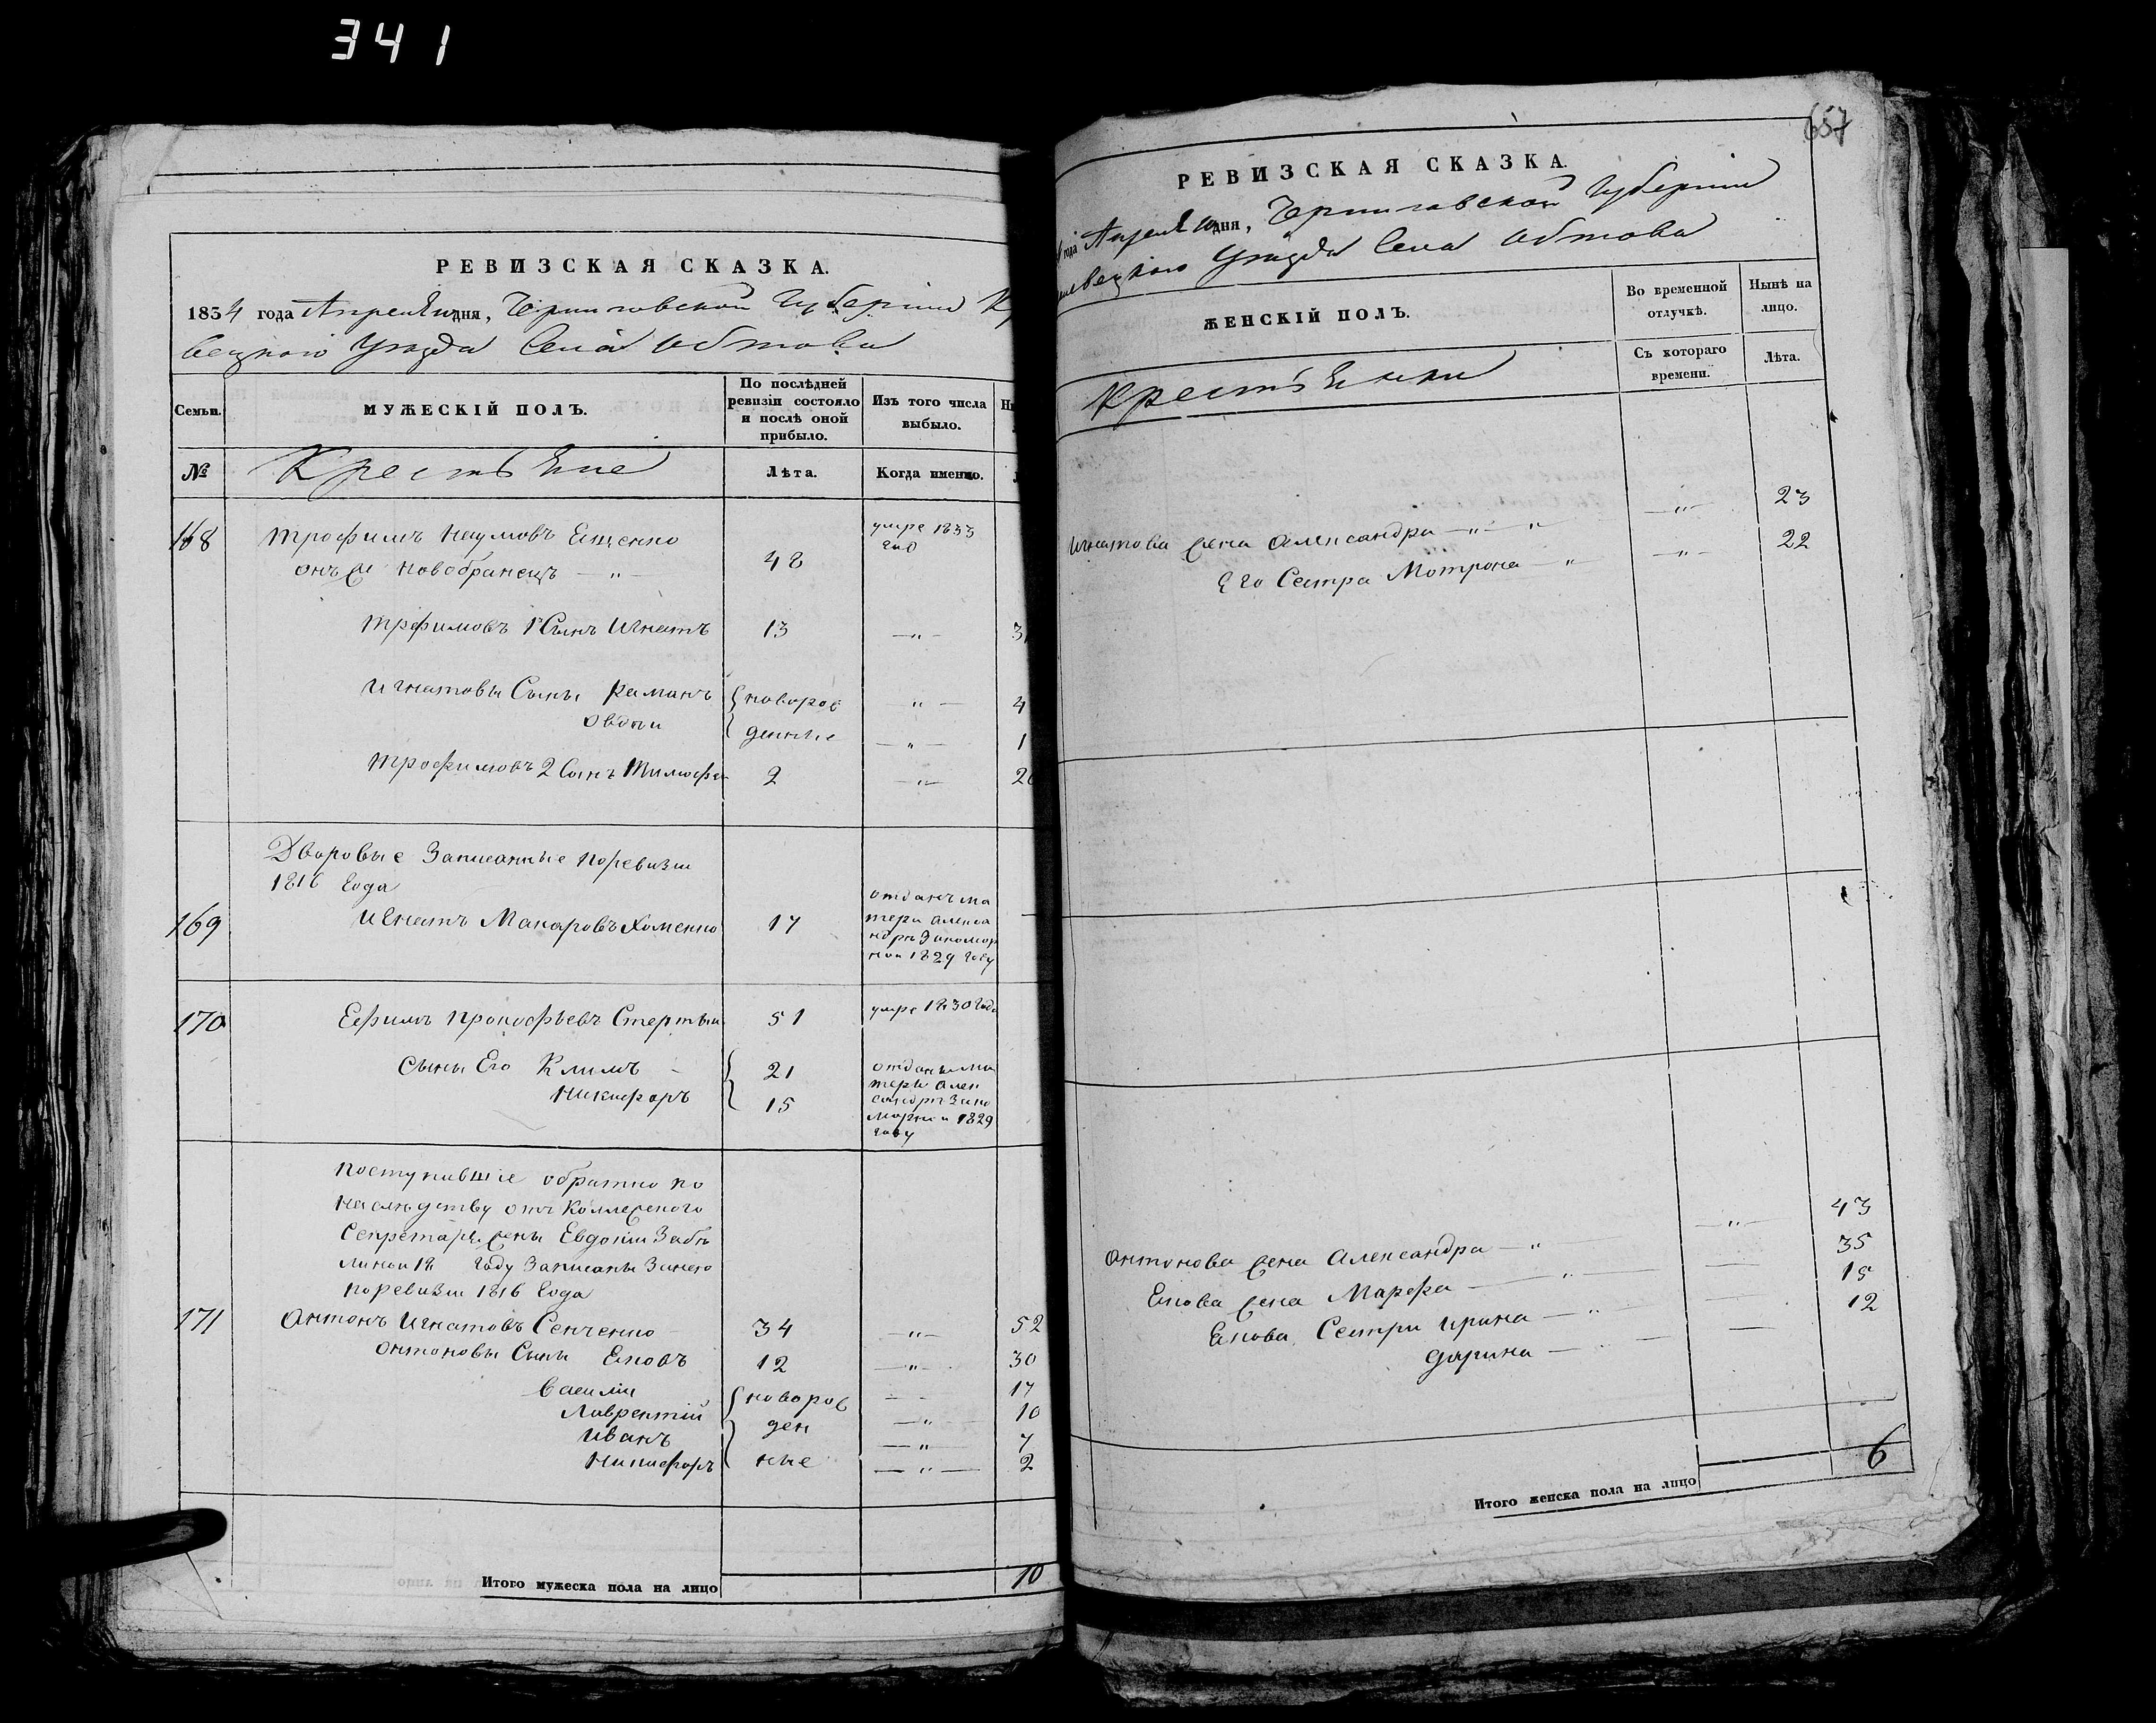 341
РЕВИЗСКАЯ СКАЗКА.
1834 года Апреля дня, Черниговской Губернии К
вецкого Уезда Села Обтова
Семьи.
МУЖЕСКІЙ ПОЛЪ.
По послѣдней ревизіи состояло и послѣ оной прибыло.
Изъ того числа выбыло.
№
Крестьяне
Лѣта.
Когда именно.
168
Трофимъ Наумовъ Ященко
48
умре 1833
год
онъ же новобранецъ — „ —
Трофимовъ 1й Сынъ Игнатъ 13 — „ —
Игнатовы Сыны Романъ новорож — „ — 4
Овдѣй денные — „ — 1
Трофимовъ 2 Сынъ Тимофе 2 — „ —
Дворовые Записанные поревизіи
1816 года
169 Игнатъ Макаровъ Хоменко 17
отданъ ма
тери Алекса
ндрѣ Закомор
ной 1829 году
170 Ефимъ Прокофьевъ Стертый 51 умре 1830 года
Сыны Его Климъ 21
Никифоръ 15
отданы ма
тери Алек
сандрѣ Зако
морной 1829
году
Поступившіе обратно по
наслѣдству отъ Коллежского
Секретаря жены Евдокіи Забѣ
линой 18 году Записаны Занею
поревизіи 1816 года
171 Антонъ Игнатовъ Сенченко 34 — „ — 52
Антоновы Сыны Яковъ 12 — „ — 30
Василій новорож — 17
Лаврентій ден — „ — 10
Иванъ — „ — 7
Никифоръ ные — „ — 2
Итого мужеска пола на лицо 10
657
РЕВИЗСКАЯ СКАЗКА.
года Апреля дня, Черниговской Губерніи
вецкого Уезда Села Обтова
ЖЕНСКІЙ ПОЛЪ.
Во временной отлучкѣ.
Нынѣ на лицо.
Крестьянки
Съ котораго времени.
Лѣта.
Игнатова жена Александра — „ — „ — „ — 23
Его Сестра Мотрона — „ — „ — 22
Антонова жена Александра — „ — „ — 43
Якова жена Марфа — „ — 35
Якова Сестры Ирина — „ — 15
Дарина — 12
Итого женска пола на лицо 6